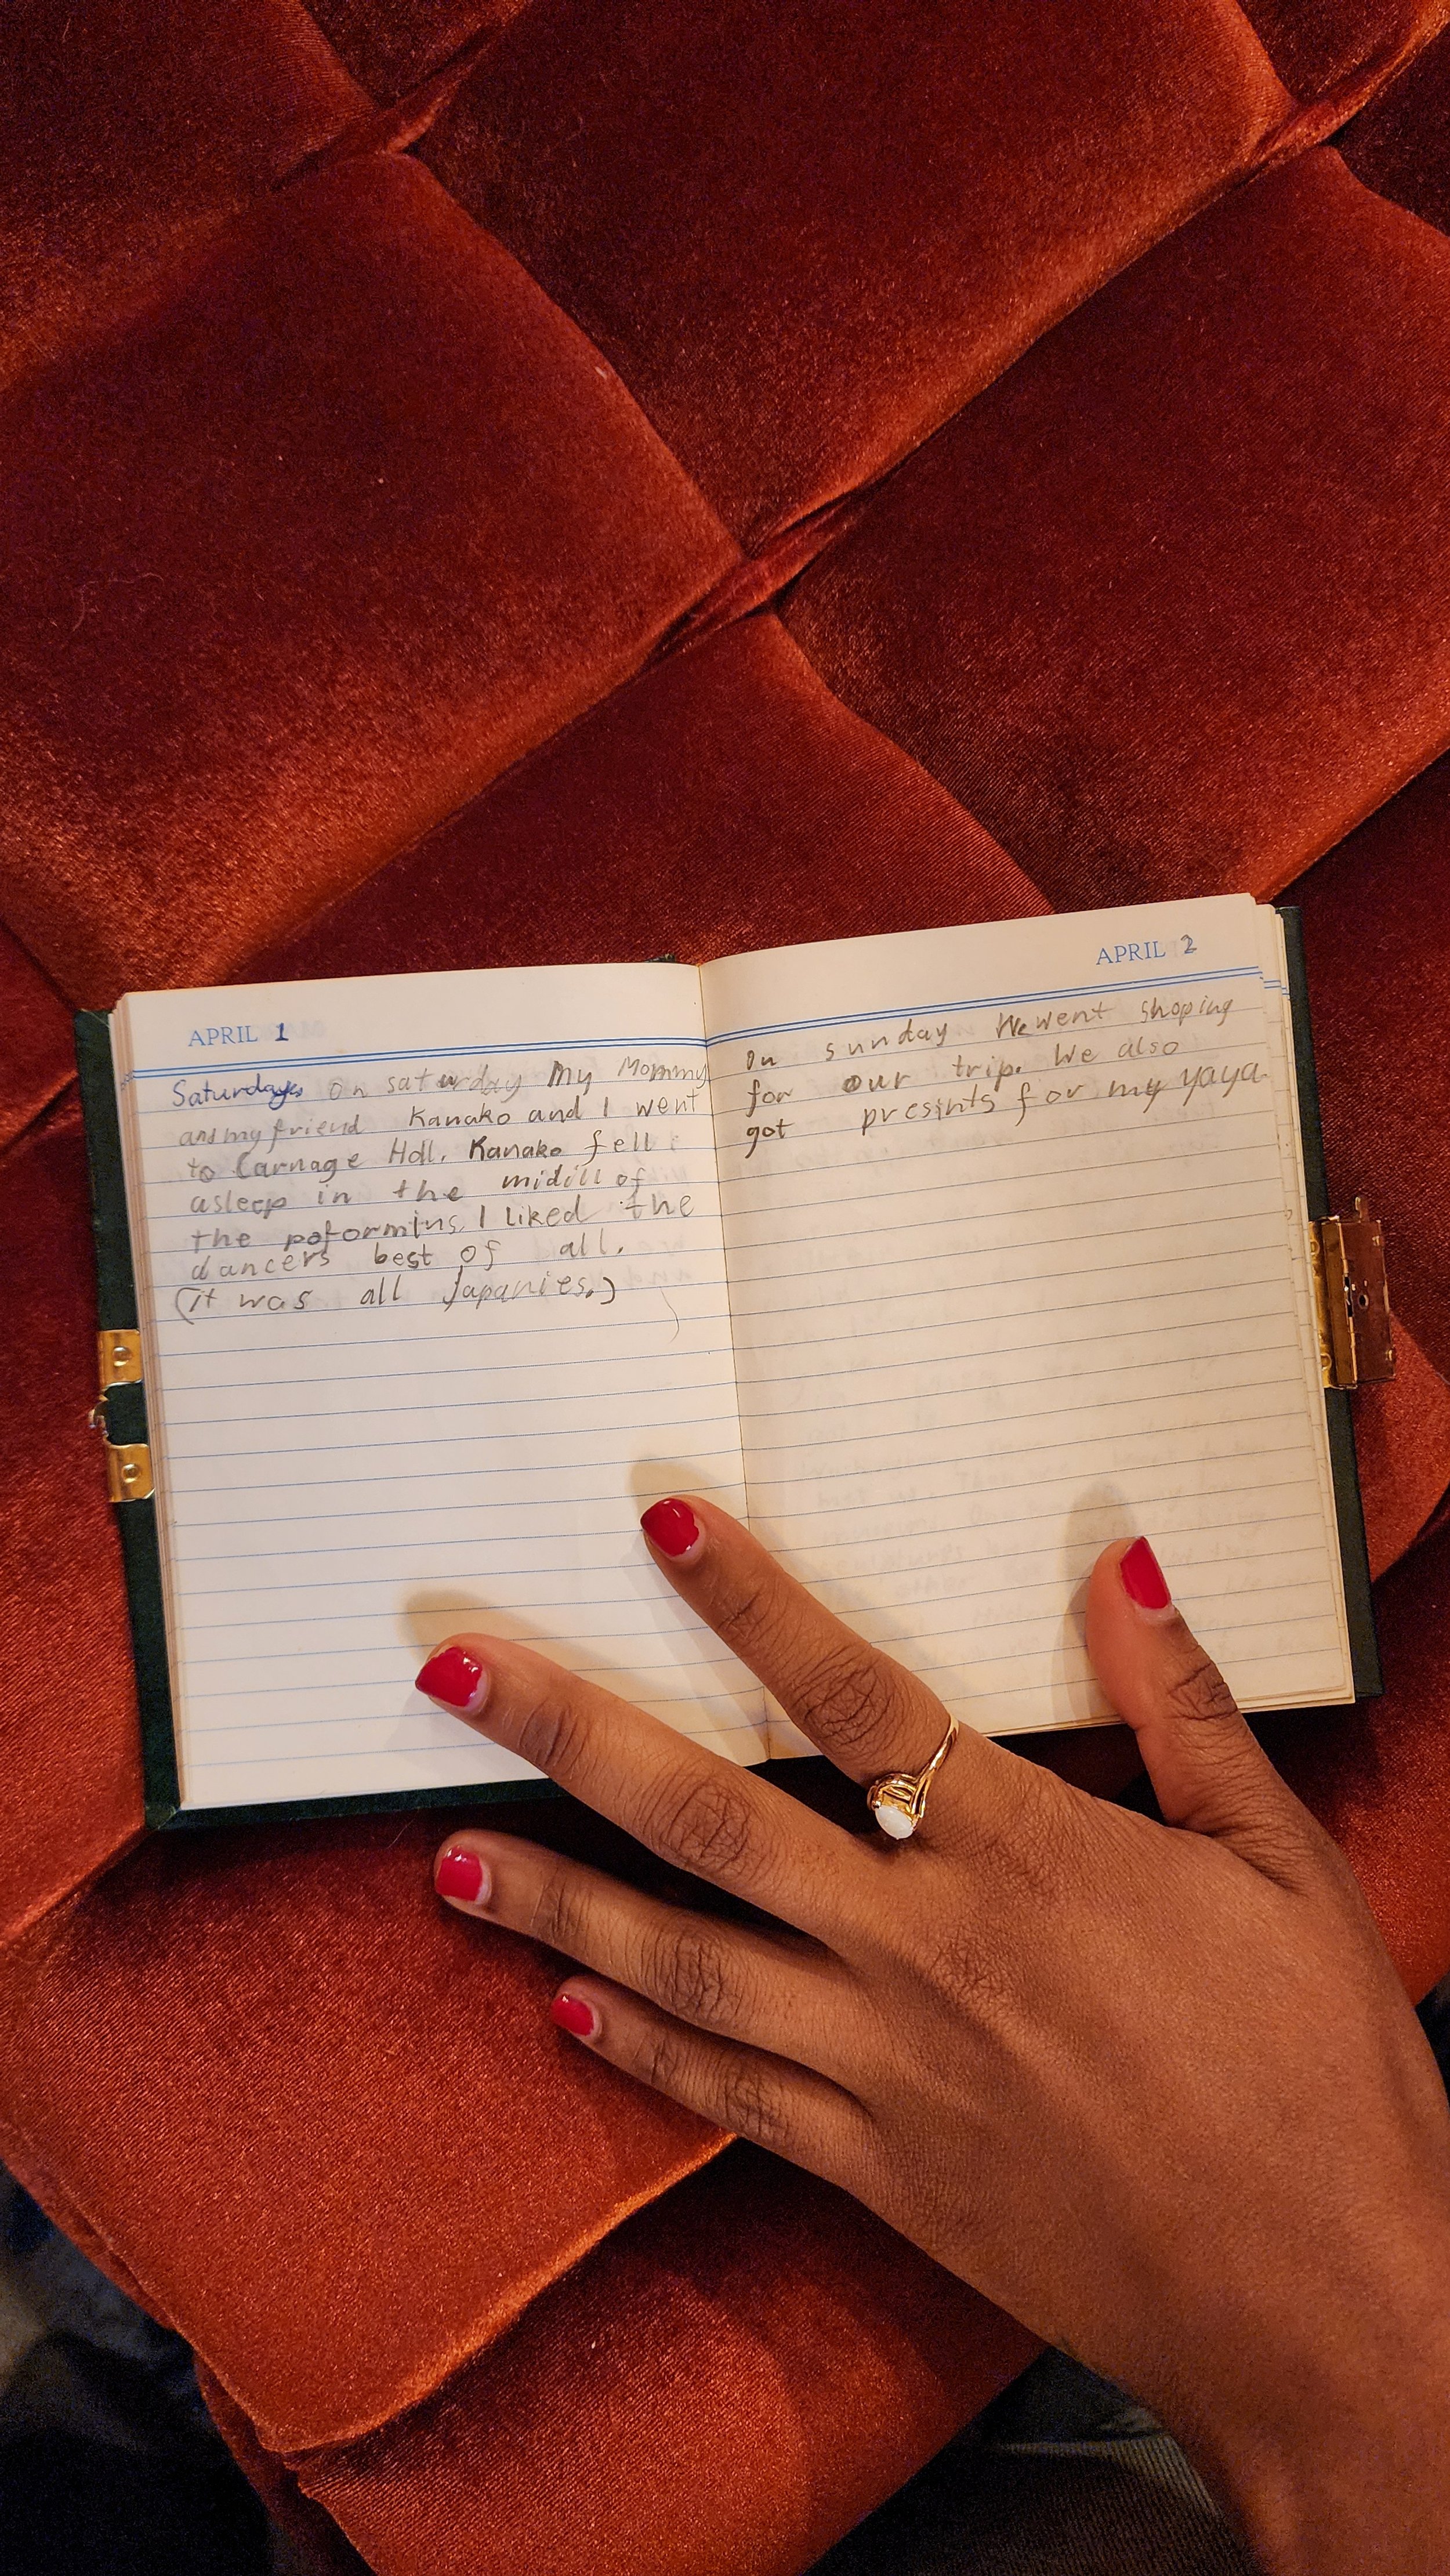 APRIL 1
Saturday. On saturday My Mommy
and my friend Kanako and I went
to Carnage Hall. Kanako fell
asleep in the midill of
the poformins. I liked the
dancers best of all.
(it was all Japanies.)
APRIL 2
On sunday We went shoping
for our trip. We also
got presints for my yaya